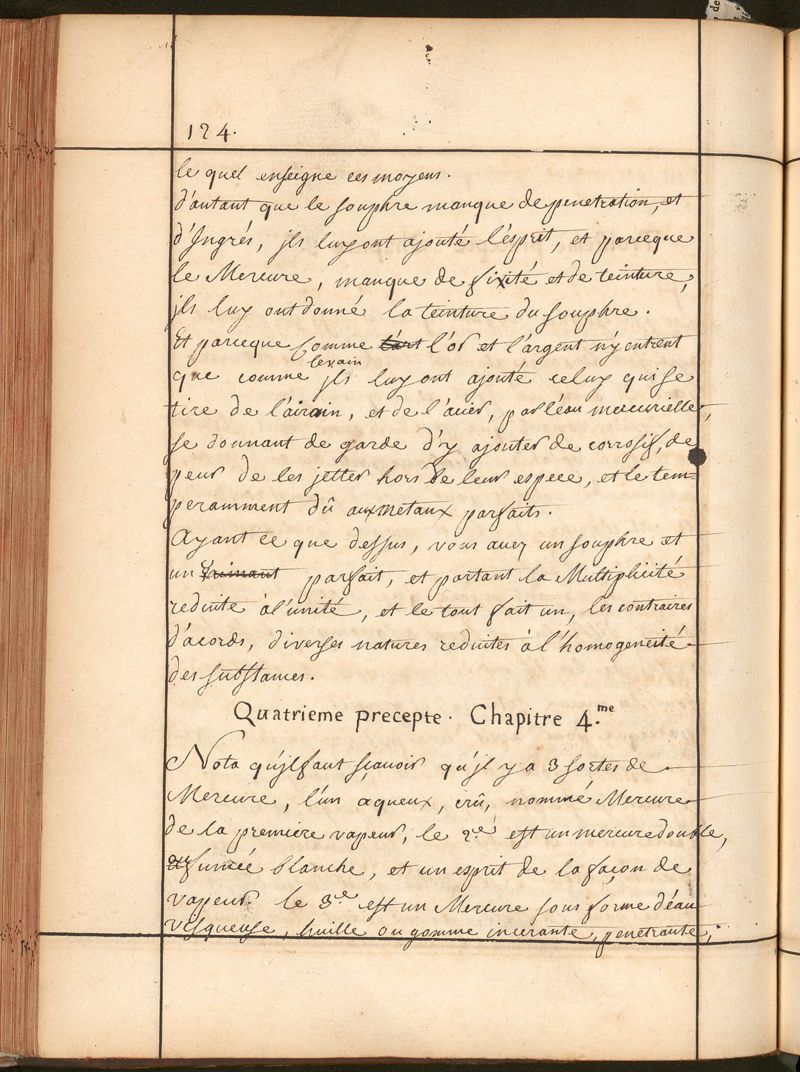 124.
le quel enseigne ces moyens.
d'autant que le souphre manque de penetration, et
d'Ingrés, jls luy ont ajouté l'esprit, et parceque
le Mercure, manque de fixité et de teinture,
jls luy ont donné la teinture du souphre.
Et parceque comme l'art l'or et l'argent n'y entrent
levain
que comme jls luy ont ajouté celuy qui se
tire de l'airain, et de l'acier, par l'eau mercurielle,
se donnant de garde d'y ajouter de corrosif, de
peur de les jetter hors de leur espece, et le tem-
peramment dû aux metaux parfaits.
Ayant ce que dessus, vous avez un souphre et
un aimant parfait, et partant la Multiplicité
reduite à l'unité, et le tout fait un, les contraires
d'acords, diverses natures reduites à l'homogeneité
des substances.
Quatrieme precepte. Chapitre 4.me
Nota qu'jl faut sçavoir qu'jl y a 3 sortes de
Mercure, l'un aqueux, crû, nommé Mercure
de la premiere vapeur, le 2.e est un mercure double,
fumée blanche, et un esprit de la façon de
vapeur. le 3.e est un Mercure sous forme d'eau
visqueuse, huille ou gomme incerante, penetrante,